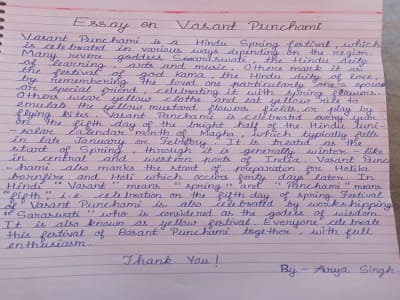 Essay on Vasant Punchami
Vasant Punchami is a Hindu Spring festival, which
is celebrated in various ways depending on the region.
Many revere goddess Sarwaswati, the Hindu duity
of learning, arts and music. Others mark it as
the festival of god kama, the Hindu duity of love,
by remembering the loved one particularly one's spouse
or special friend, celebrating it with spring flowers.
Others wear yellow cloths and eat yellow rice to
emulate the yellow mustard flowers fields or play by
flying kites. Vasant Panchami is celebrated every year
on the fifth day of the bright half of the Hindu luni-
solar calendar month of Magha, which typically falls
in late January or February. It is treated as the
start of Spring, through it is generally winter-like
in central and western parts of India. Vasant Punc
-hami also marks the start of preparation for Holika
bornfire and Holi which occurs forty days later. In
Hindi "Vasant" means "spring" and "Panchami" means
"fifth", i.e. celebration on the fifth day of spring. Festival
of Vasant Punchami also celebrated by workshipping
"Saraswati" who is considered as the goddess of wisdom.
It is also known as yellow festival. Everyone celebrate
this festival of Basant Punchami together, with full
enthusiasm.
Thank You!
By - Arya Singh